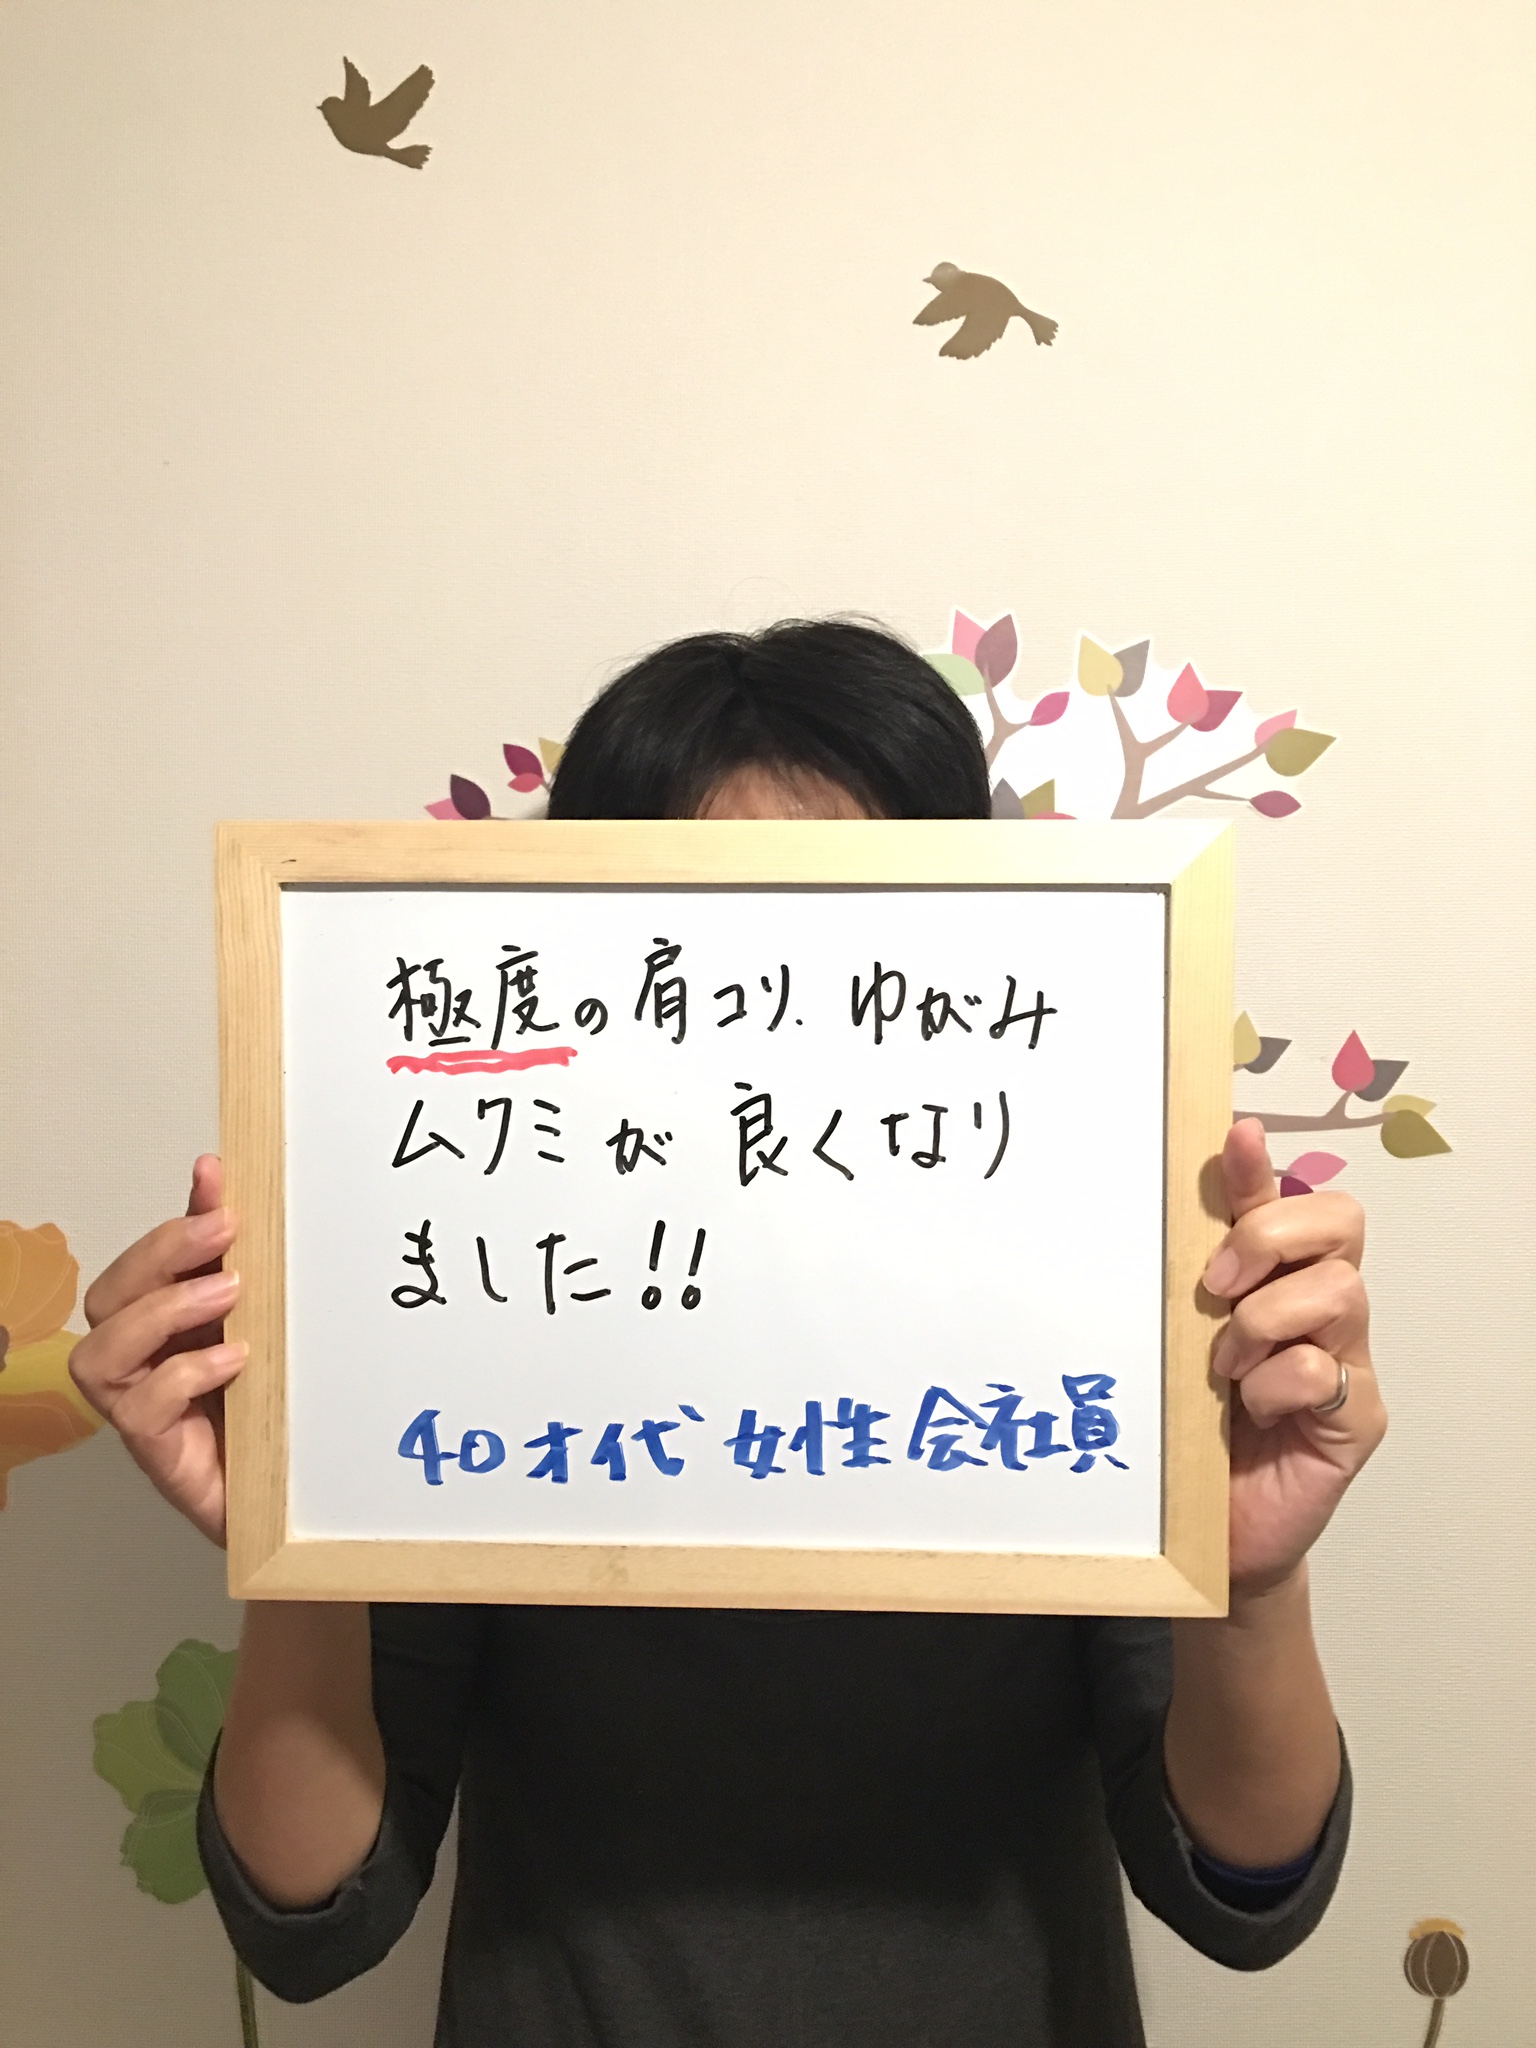 極度の肩コリ、ゆがみ
ムクミが良くなり
ました!!
40才代女性会社員